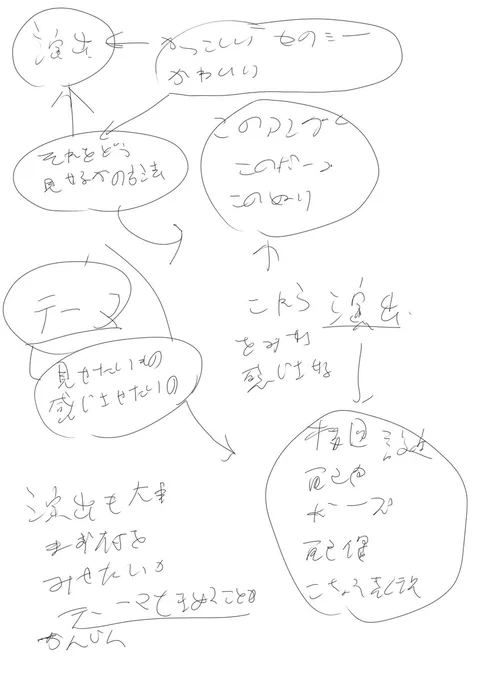 演出
かっこいい ものシー
かわいい
それをどう
見せるかの方法
このアングル
このポーズ
このぬり
テーマ
見せたいもの
感じさせたいの
これら 演出
をみせ
感じさせる
構図
配色
ポーズ
配置
こちょう表現
演出も大事
まず何を
みせたいか
テーマをきめることが
かんじん